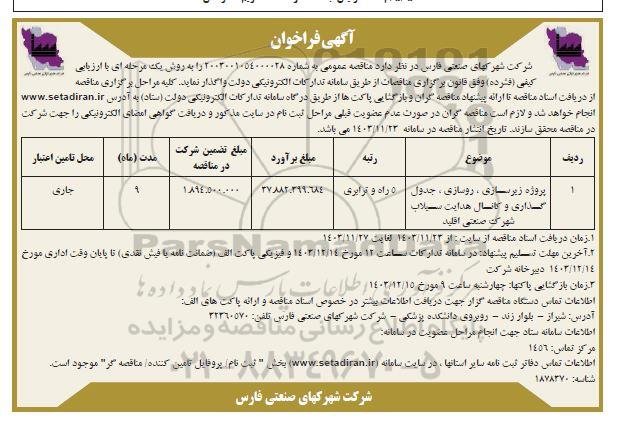 آگهی فراخوان
شرکت شهرکهای صنعتی فارس در نظر دارد مناقصه عمومی به شماره ۲۰۰۳۰۰۱۰۵۴۰۰۰۰۲۸ را به روش یک مرحله ای با ارزیابی
کیفی (فشرده) وفق قانون برگزاری مناقصات از طریق سامانه تدارکات الکترونیکی دولت واگذار نماید. کلیه مراحل برگزاری مناقصه
از دریافت اسناد مناقصه تا ارائه پیشنهاد مناقصه گران و بازگشایی پاکت ها از طریق درگاه سامانه تدارکات الکترونیکی دولت (ستاد) به آدرس www.setadiran.ir
انجام خواهد شد و لازم است مناقصه گران در صورت عدم عضویت قبلی مراحل ثبت نام در سایت مذکور و دریافت گواهی امضای الکترونیکی را جهت شرکت
در مناقصه محقق سازند. تاریخ انتشار مناقصه در سامانه ۱۴۰۳/۱۱/۲۳ می باشد.
ردیف موضوع رتبه مبلغ برآورد مبلغ تضمین شرکت در مناقصه مدت (ماه) محل تامین اعتبار
۱ پروژه زیرسازی ، روسازی ، جدول گذاری و کانال هدایت سیلاب شهرک صنعتی اقلید ۵ راه و ترابری ۳۷.۸۸۲.۳۹۹.۶۸۴ ۱.۸۹۴.۵۰۰.۰۰۰ ۹ جاری
۱.زمان دریافت اسناد مناقصه از سایت : از ۱۴۰۳/۱۱/۲۳ لغایت ۱۴۰۳/۱۱/۲۷
۲.آخرین مهلت تسلیم پیشنهاد: در سامانه تدارکات ساعت ۱۲ مورخ ۱۴۰۳/۱۲/۱۴ و فیزیکی پاکت الف (ضمانت نامه یا فیش نقدی) تا پایان وقت اداری مورخ
۱۴۰۳/۱۲/۱۴ دبیرخانه شرکت
۳.زمان بازگشایی پاکتها: چهارشنبه ساعت ۹ مورخ ۱۴۰۳/۱۲/۱۵
اطلاعات تماس دستگاه مناقصه گزار جهت دریافت اطلاعات بیشتر در خصوص اسناد مناقصه و ارائه پاکت های الف:
آدرس: شیراز – بلوار زند – روبروی دانشکده پزشکی – شرکت شهرکهای صنعتی فارس تلفن: ۳۲۳۶۰۵۷۰
اطلاعات سامانه ستاد جهت انجام مراحل عضویت در سامانه:
مرکز تماس: ۱۴۵۶
اطلاعات تماس دفاتر ثبت نامه سایر استانها ، در سایت سامانه (www.setadiran.ir) بخش " ثبت نام/ پروفایل تامین کننده/ مناقصه گر" موجود است.
شناسه: ۱۸۷۸۳۷۰
شرکت شهرکهای صنعتی فارس
ParsNamad
۰۲۱-۸۸۳۴۹۶۷۰-۵